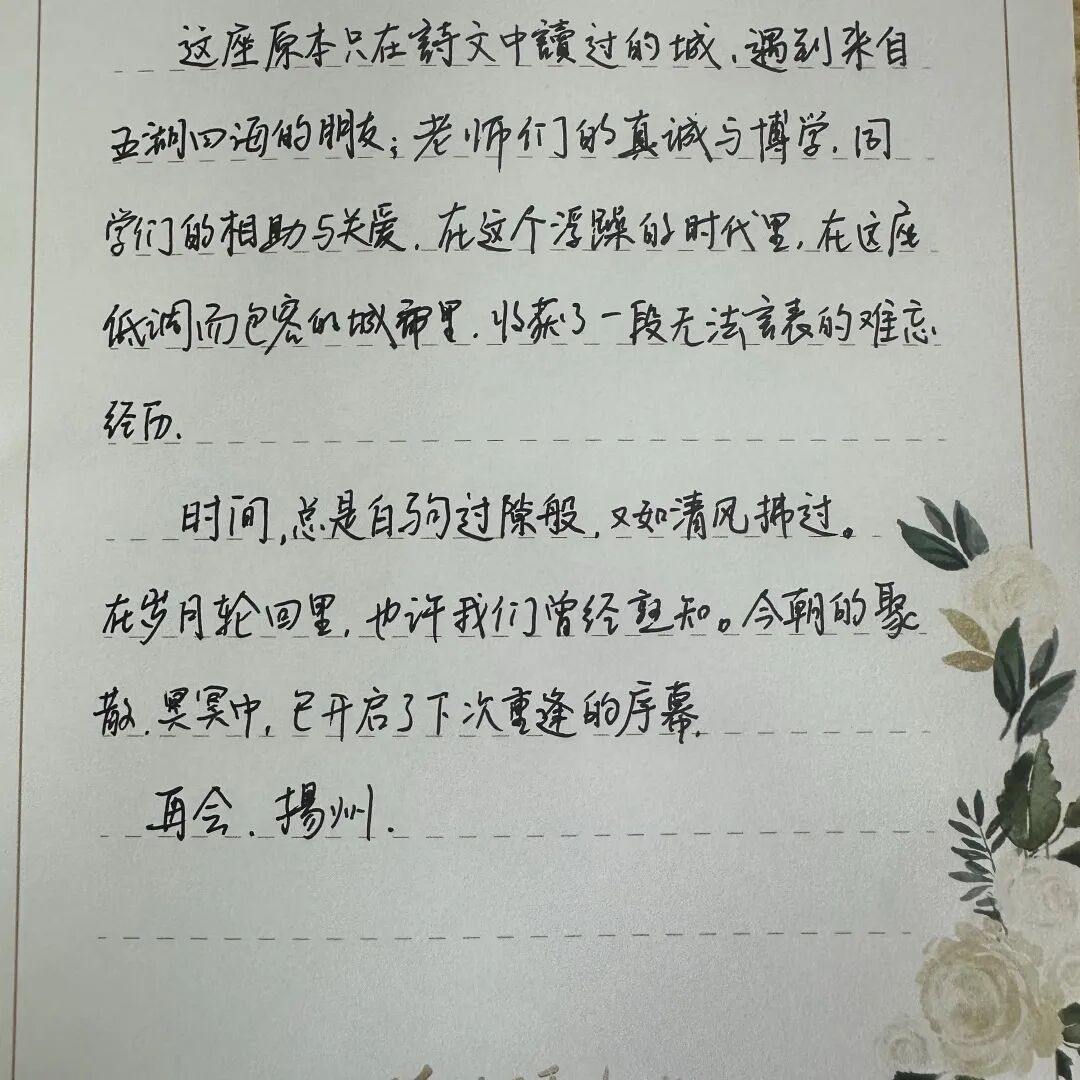 这座原本只在詩文中讀过的城、遇到来自
五湖四海的朋友；老师们的真诚与博学.同
学们的相助与关爱.在这个浮躁的时代里,在这座
低调而包容的城市里.收获了一段无法言表的难忘
经历.
时间,总是白驹过隙般,又如清风拂过。
在岁月轮回里,也许我们曾经熟知。今朝的聚
散.冥冥中,已开启了下次重逢的序幕.
再会.揚州.